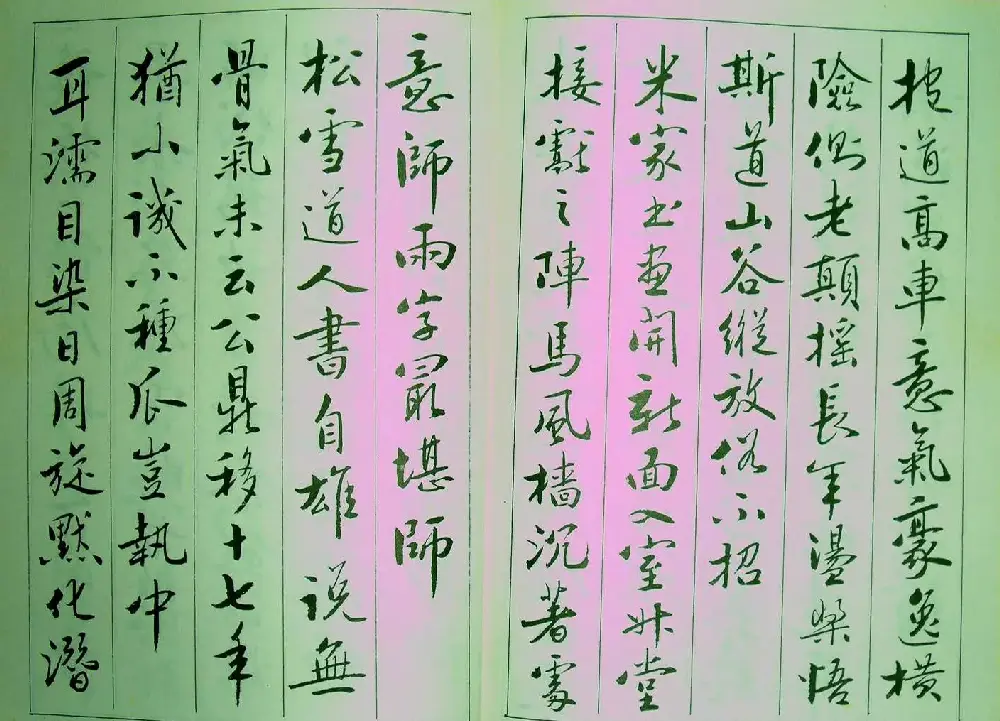 抱道高車意氣豪逸橫
險側老顛搖長年盪槳悟
斯道山谷縱放俗不招
米家書畫開新面入室升堂
接獻之陣馬風檣沉著處
意師兩字最堪師
松雪道人書自雄说無
骨氣未云公鼎移十七年
猶小譏不種瓜豈執中
耳濡目染日周旋默化潛